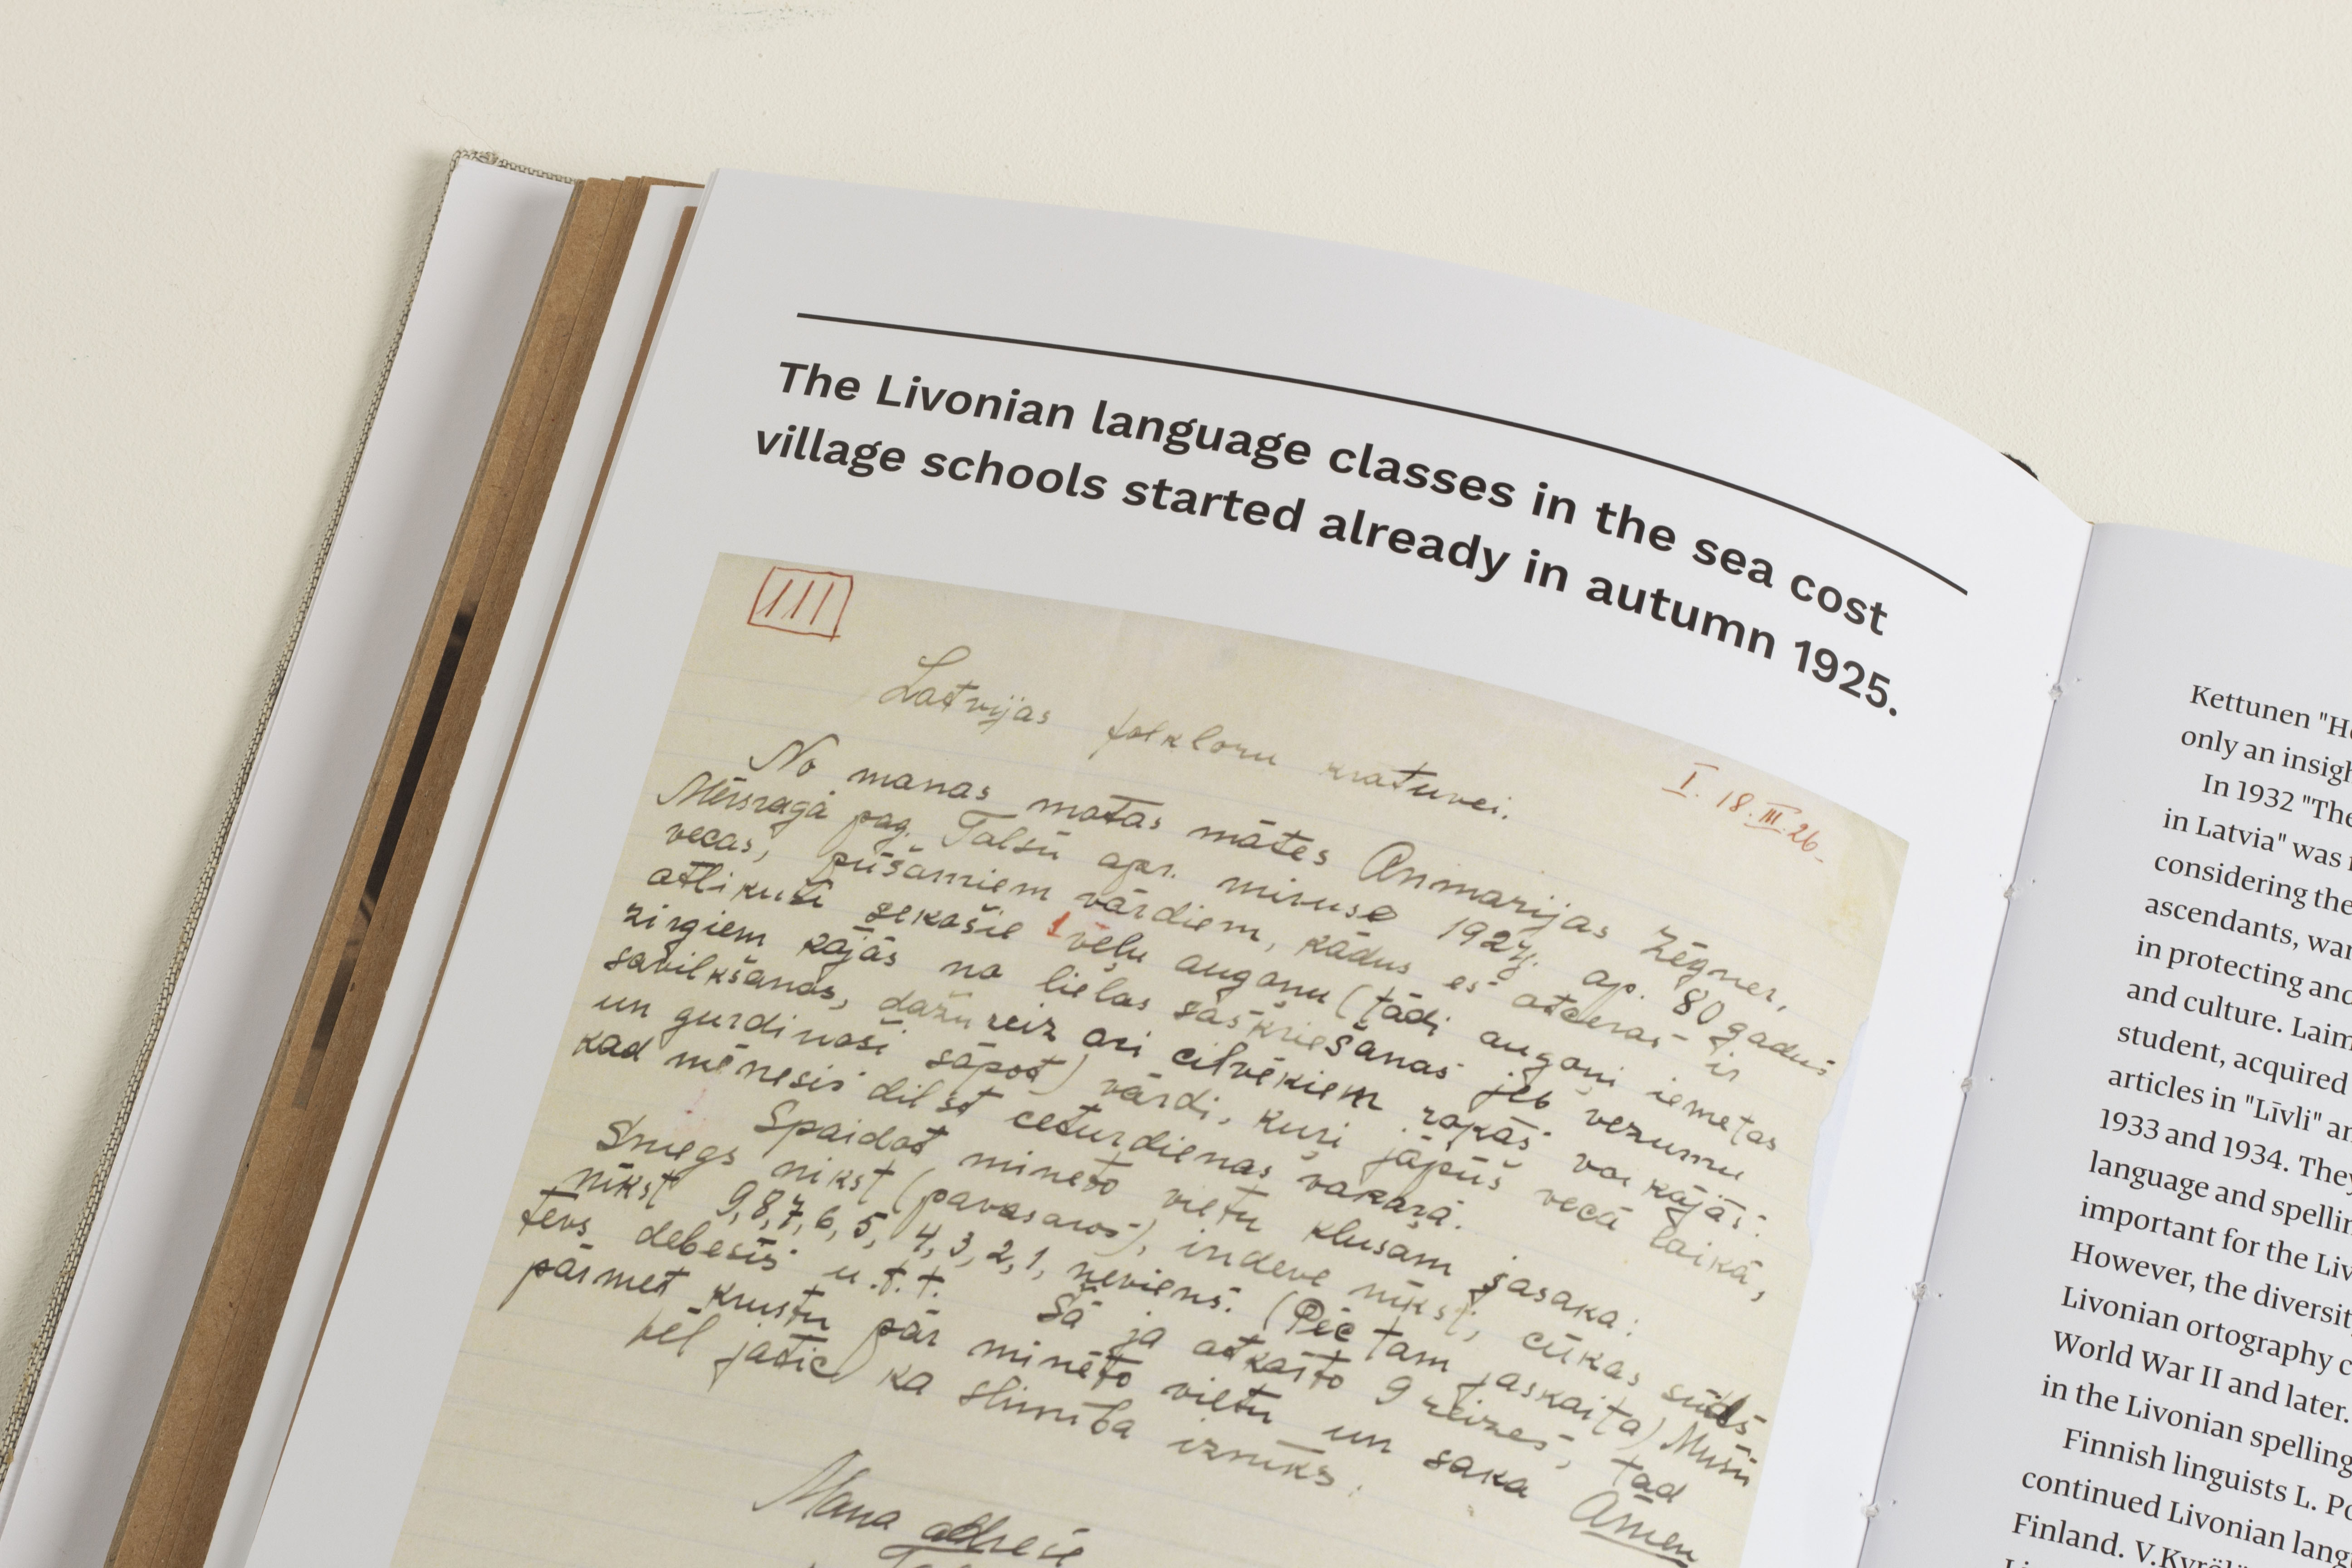 The Livonian language classes in the sea cost
village schools started already in autumn 1925.
III
Latvijas folkloru kratuvei.
I. 18. III. 26.
No manas matas mātes Annmarijas Zēgner,
Mērsragā pag. Talsu apr. miruse 1924. ap. 80 gadus
vecas, pūšamiem vārdiem, kādus es atceras ir
atlikuši sekašie 1 vēļu auganu (tādi augoņi iemetas
zirgiem kājās no lielas sāskriešanas jeb vezumu
savilkšanas, dažureiz ari cilvēkiem rokās vai kājās:
un gurdinoši sāpot) vārdi, kuŗi jāpūš vecā laikā,
kad mēnesis dilst ceturdienas vakarā.
Spaidot mineto vietu klusam jasaka:
Sniegs nikst (pavasaros), indeve nīkst, cūkas sūds
nīkst 9, 8, 7, 6, 5, 4, 3, 2, 1, neviens. (Pēc tam jaskaita) Mūsu
tevs debesīs u.t.t. Sā ja atkaito 9 reizes, tad
pārmet krustu pār minēto vietu un saka Amen
vēl jatic ka slimība iznīks.
Mana adrese
Kettunen "H
only an insigh
In 1932 "The
in Latvia" was
considering the
ascendants, wa
in protecting and
and culture. Laim
student, acquired
articles in "Līvli" an
1933 and 1934. They
language and spellin
important for the Liv
However, the diversit
Livonian ortography c
World War II and later.
in the Livonian spelling
Finnish linguists L. Po
continued Livonian lang
Finland. V.Kyrölä